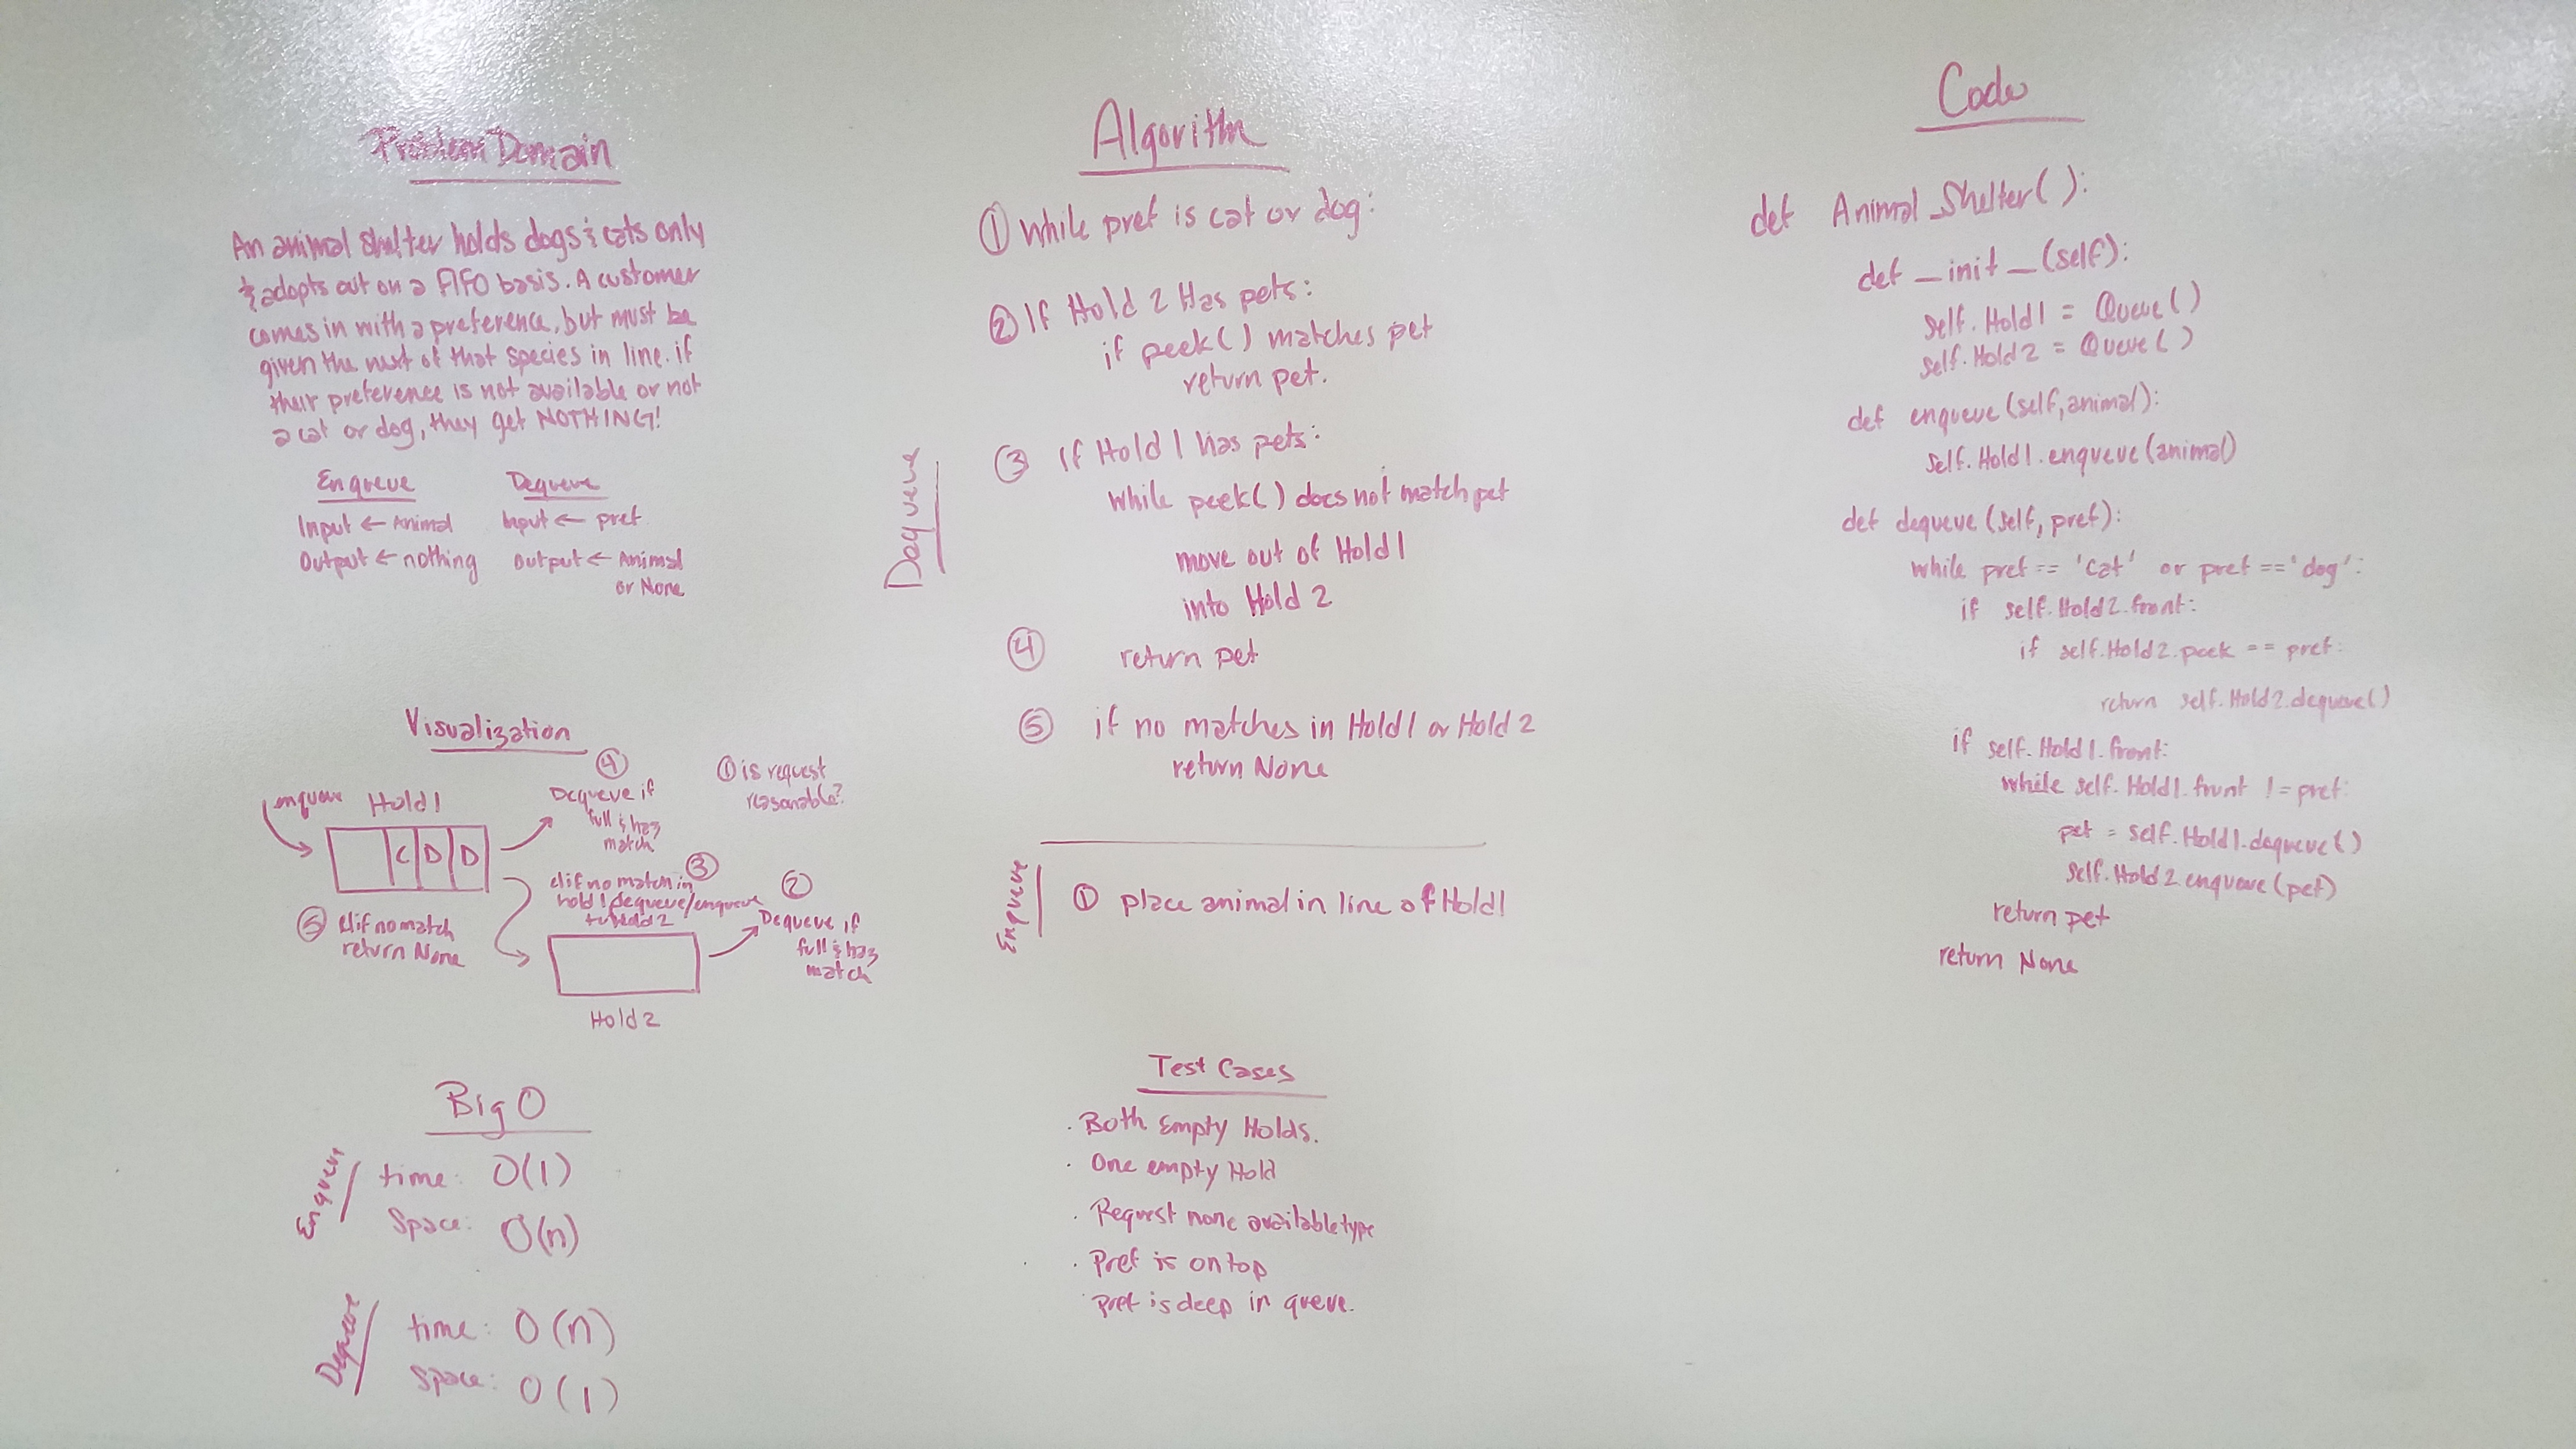 Problem Domain
An animal shelter holds dogs & cats only
& adopts out on a FIFO basis. A customer
comes in with a preference, but must be
given the next of that species in line. if
their preference is not available or not
a cat or dog, they get NOTHING!
Enqueue
Input ← Animal
Output ← nothing
Dequeue
Input ← pref
Output ← Animal
or None
Visualization
enqueue
Hold 1
C D D
④
Dequeue if
full & has
match
① is request
reasonable?
③
elif no match in
hold 1 dequeue/enqueue
to Hold 2
②
Dequeue if
full & has
match
⑤ elif no match
return None
Hold 2
Big O
Enqueue
time: O(1)
Space: O(n)
Dequeue
time: O(n)
Space: O(1)
Algorithm
Dequeue
① While pref is cat or dog:
② If Hold 2 Has pets:
if peek() matches pet
return pet.
③ If Hold 1 has pets:
while peek() does not match pet
move out of Hold 1
into Hold 2
④ return pet
⑤ if no matches in Hold 1 or Hold 2
return None
Enqueue
① place animal in line of Hold 1
Test Cases
· Both Empty Holds.
· One empty Hold
· Request none available type
· Pref is on top
· Pref is deep in queue.
Code
def Animal_Shelter():
def _init_(self):
self.Hold1 = Queue()
self.Hold2 = Queue()
def enqueue(self, animal):
self.Hold1.enqueue(animal)
def dequeue(self, pref):
while pref == 'cat' or pref == 'dog':
if self.Hold2.front:
if self.Hold2.peek == pref:
return self.Hold2.dequeue()
if self.Hold1.front:
while self.Hold1.front != pref:
pet = self.Hold1.dequeue()
self.Hold2.enqueue(pet)
return pet
return None